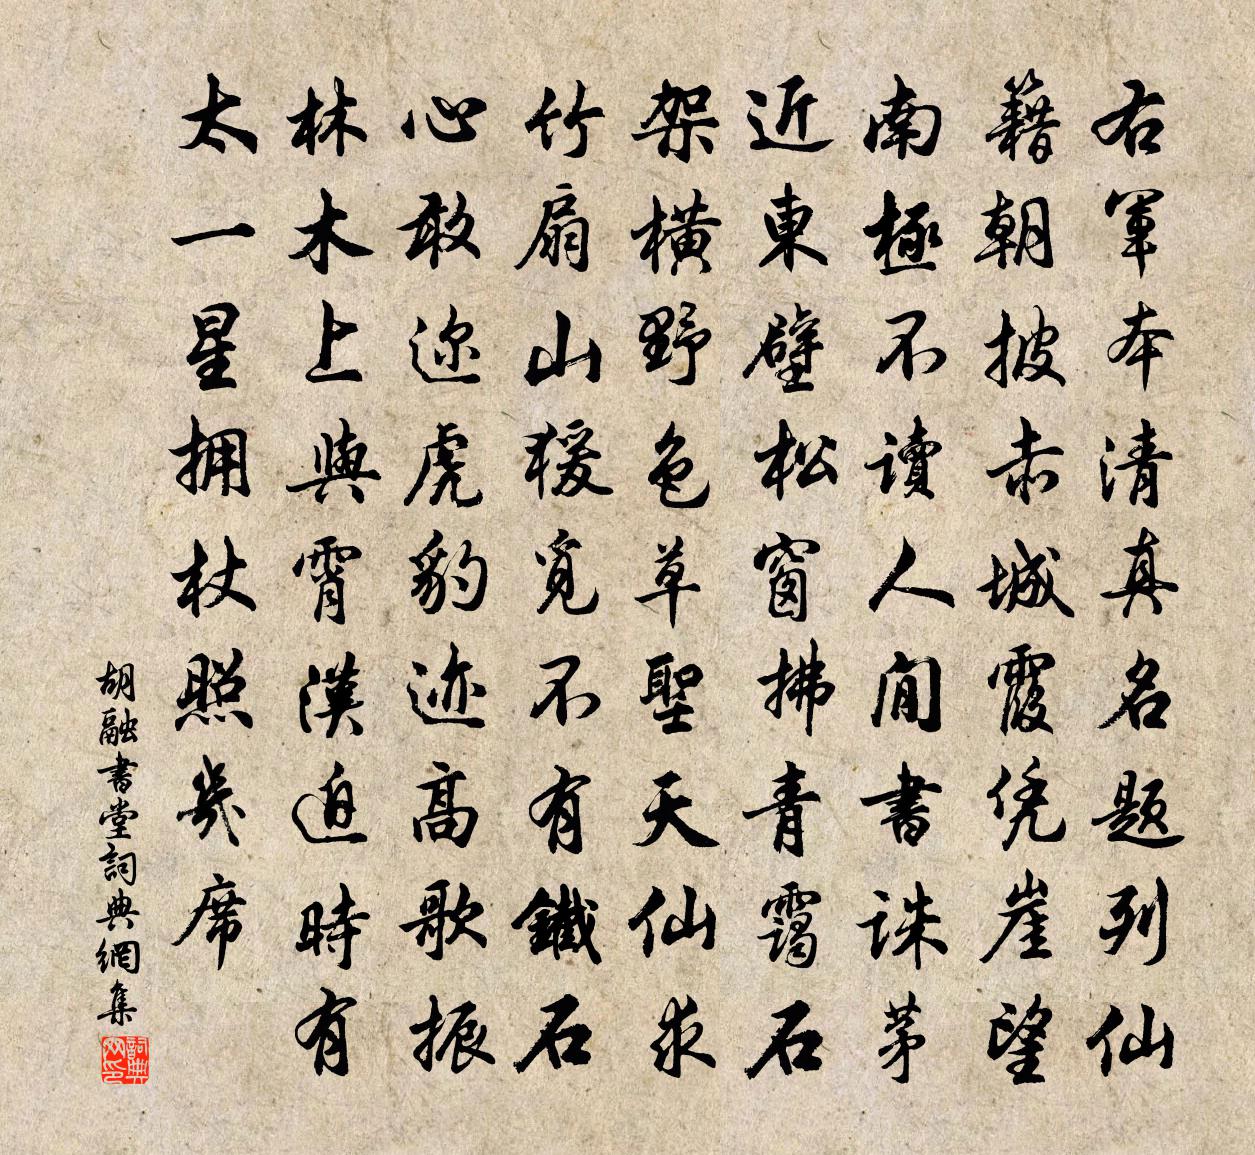 右軍本清真名題列仙
籍朝披赤城霞凭崖望
南極不讀人間書誅茅
近東壁松窗拂青靄石
架橫野色草聖天仙求
竹扇山猨覓不有鐵石
心敢邇虎豹迹高歌振
林木上與霄漢迫時有
太一星拥杖照幾席
胡融書堂詞典網集
詞典网印